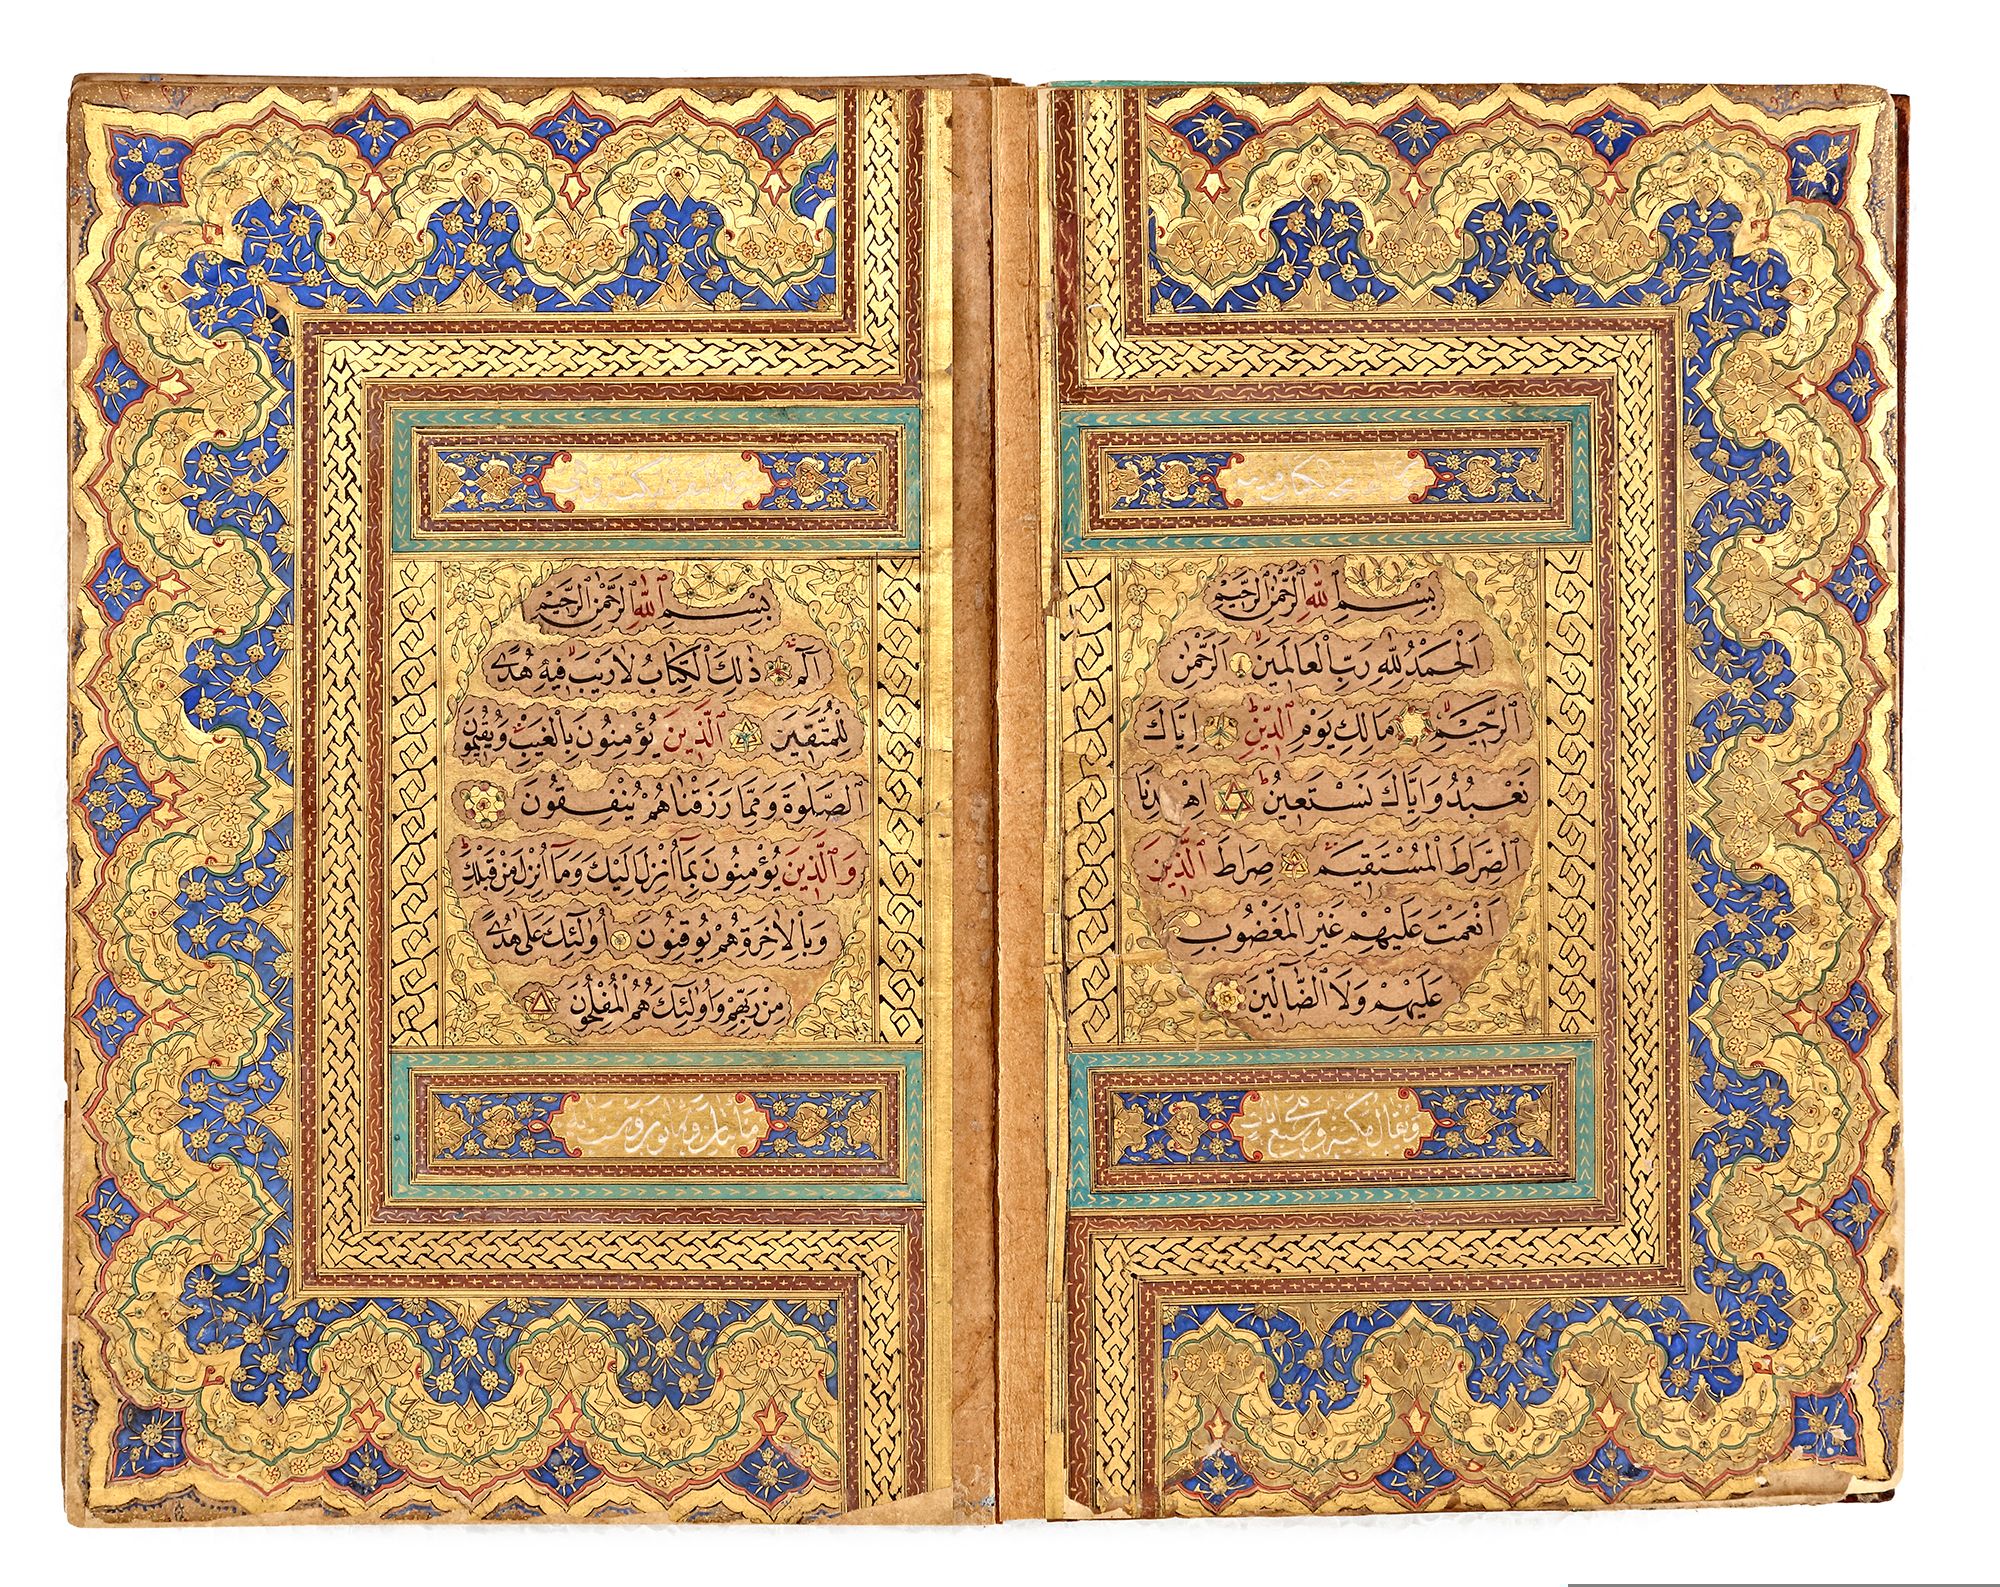 بِسْمِ اللّٰهِ الرَّحْمٰنِ الرَّحِيمِ
اَلْحَمْدُ لِلّٰهِ رَبِّ الْعَالَمِينَ الرَّحْمٰنِ
الرَّحِيمِ مَالِكِ يَوْمِ الدِّينِ اِيَّاكَ
نَعْبُدُ وَاِيَّاكَ نَسْتَعِينُ اِهْدِنَا
الصِّرَاطَ الْمُسْتَقِيمَ صِرَاطَ الَّذِينَ
اَنْعَمْتَ عَلَيْهِمْ غَيْرِ الْمَغْضُوبِ
عَلَيْهِمْ وَلَا الضَّآلِّينَ
ويقال مكية وهي سبع آيات
بِسْمِ اللّٰهِ الرَّحْمٰنِ الرَّحِيمِ
الٓمٓ ذٰلِكَ الْكِتَابُ لَا رَيْبَ فِيهِ هُدًى
لِلْمُتَّقِينَ الَّذِينَ يُؤْمِنُونَ بِالْغَيْبِ وَيُقِيمُونَ
الصَّلٰوةَ وَمِمَّا رَزَقْنَاهُمْ يُنْفِقُونَ
وَالَّذِينَ يُؤْمِنُونَ بِمَآ اُنْزِلَ اِلَيْكَ وَمَآ اُنْزِلَ مِنْ قَبْلِكَ
وَبِالْاٰخِرَةِ هُمْ يُوقِنُونَ اُولٰئِكَ عَلٰى هُدًى
مِنْ رَبِّهِمْ وَاُولٰئِكَ هُمُ الْمُفْلِحُونَ